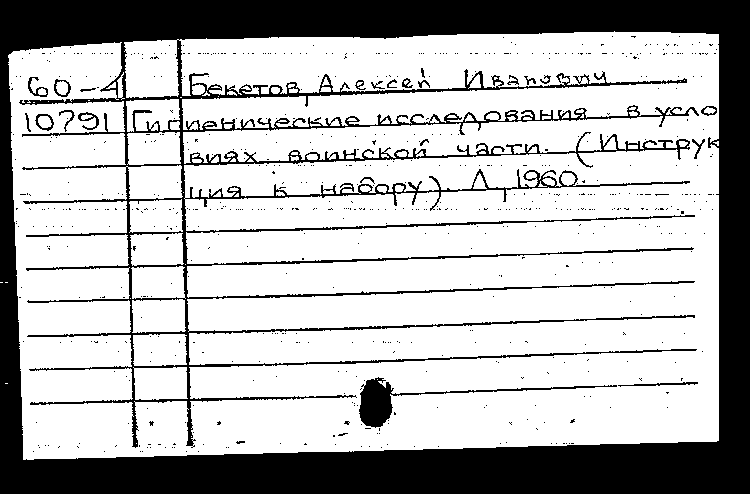 60-4 Бекетов, Алексей Иванович
10791 Гигиенические исследования в усло
виях воинской части. (Инструк
ция к набору). Л, 1960.